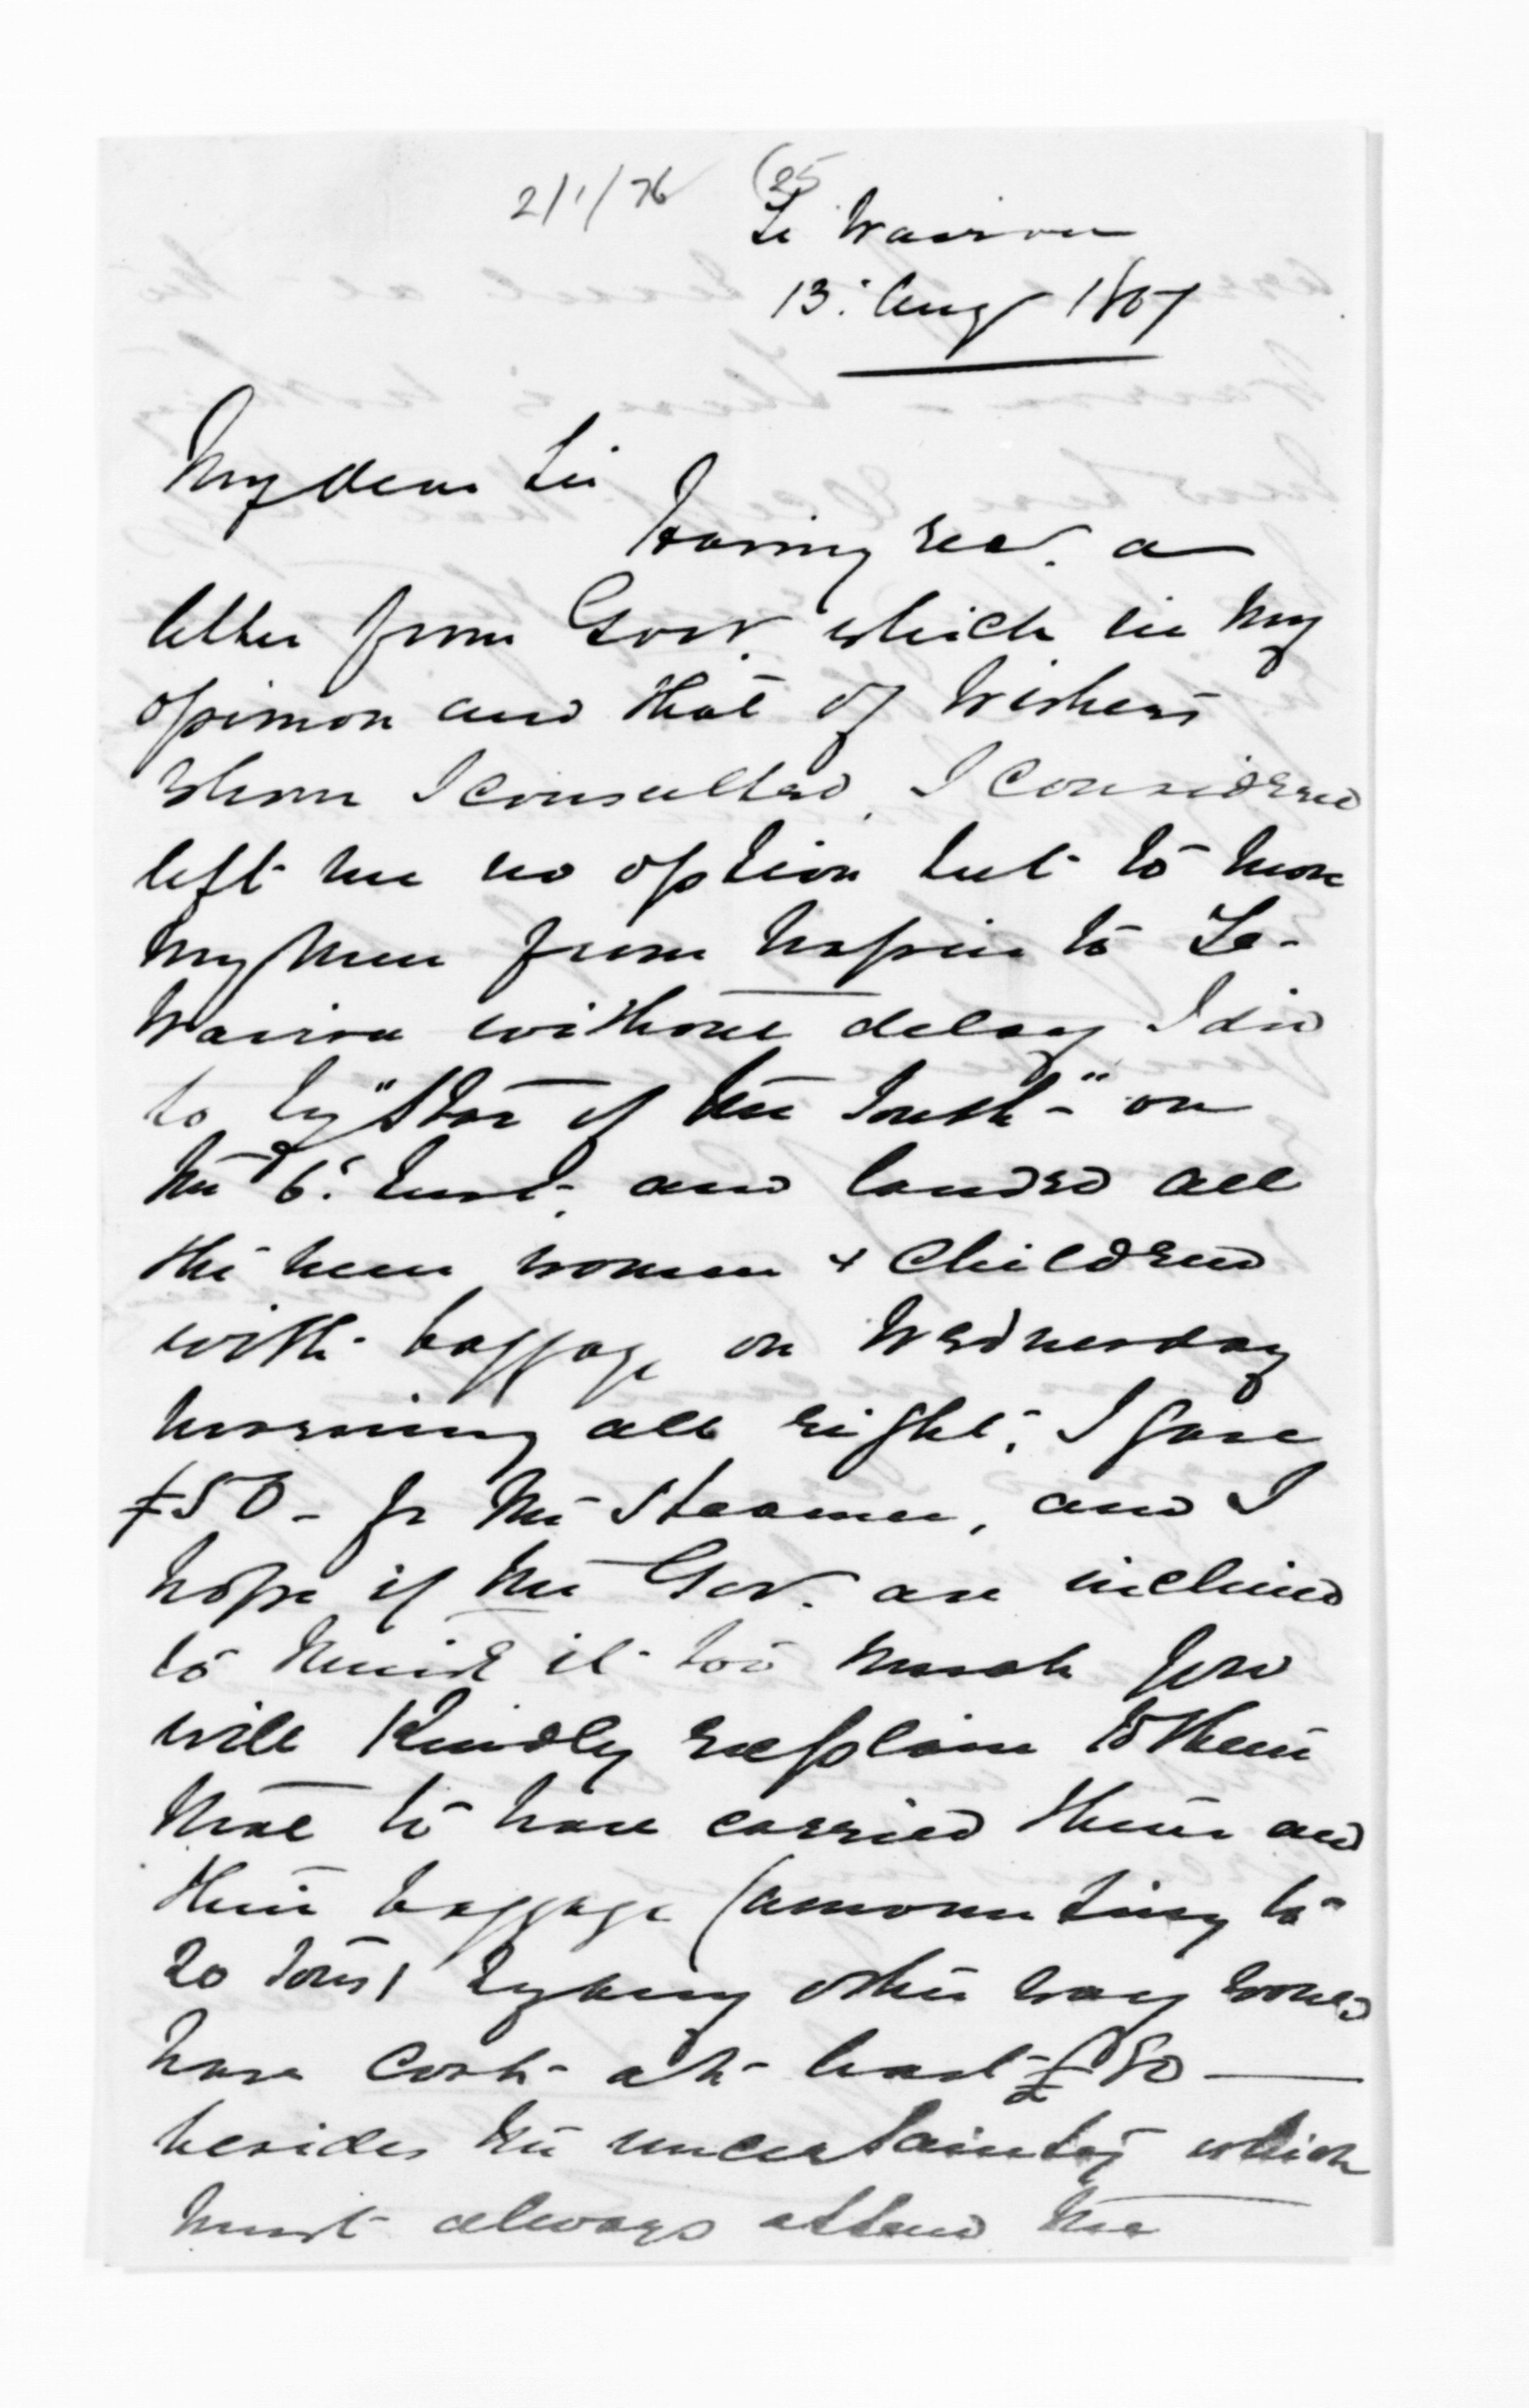 2/1/76 (25
Te Wairoa
13: Aug 1867
My dear Sir
Having recd. a
letter from Govt. which in my
opinion and that of Withers
whom I consulted, I considered
left me no option but to move
my men from Napier to Te-
Wairoa without delay I did
so by "Star of the South" on
the 6: Inst. and landed all
the men women + children
with baggage on Wednesday
morning all right. I gave
£50 - for the Steamer, and I
hope if the Gov. are inclined
to think it too much you
will kindly explain to them
that to have carried them and
their baggage (amounting to
20 tons) by any other way would
have cost at least £80 —
besides the uncertainty which
must always attend the